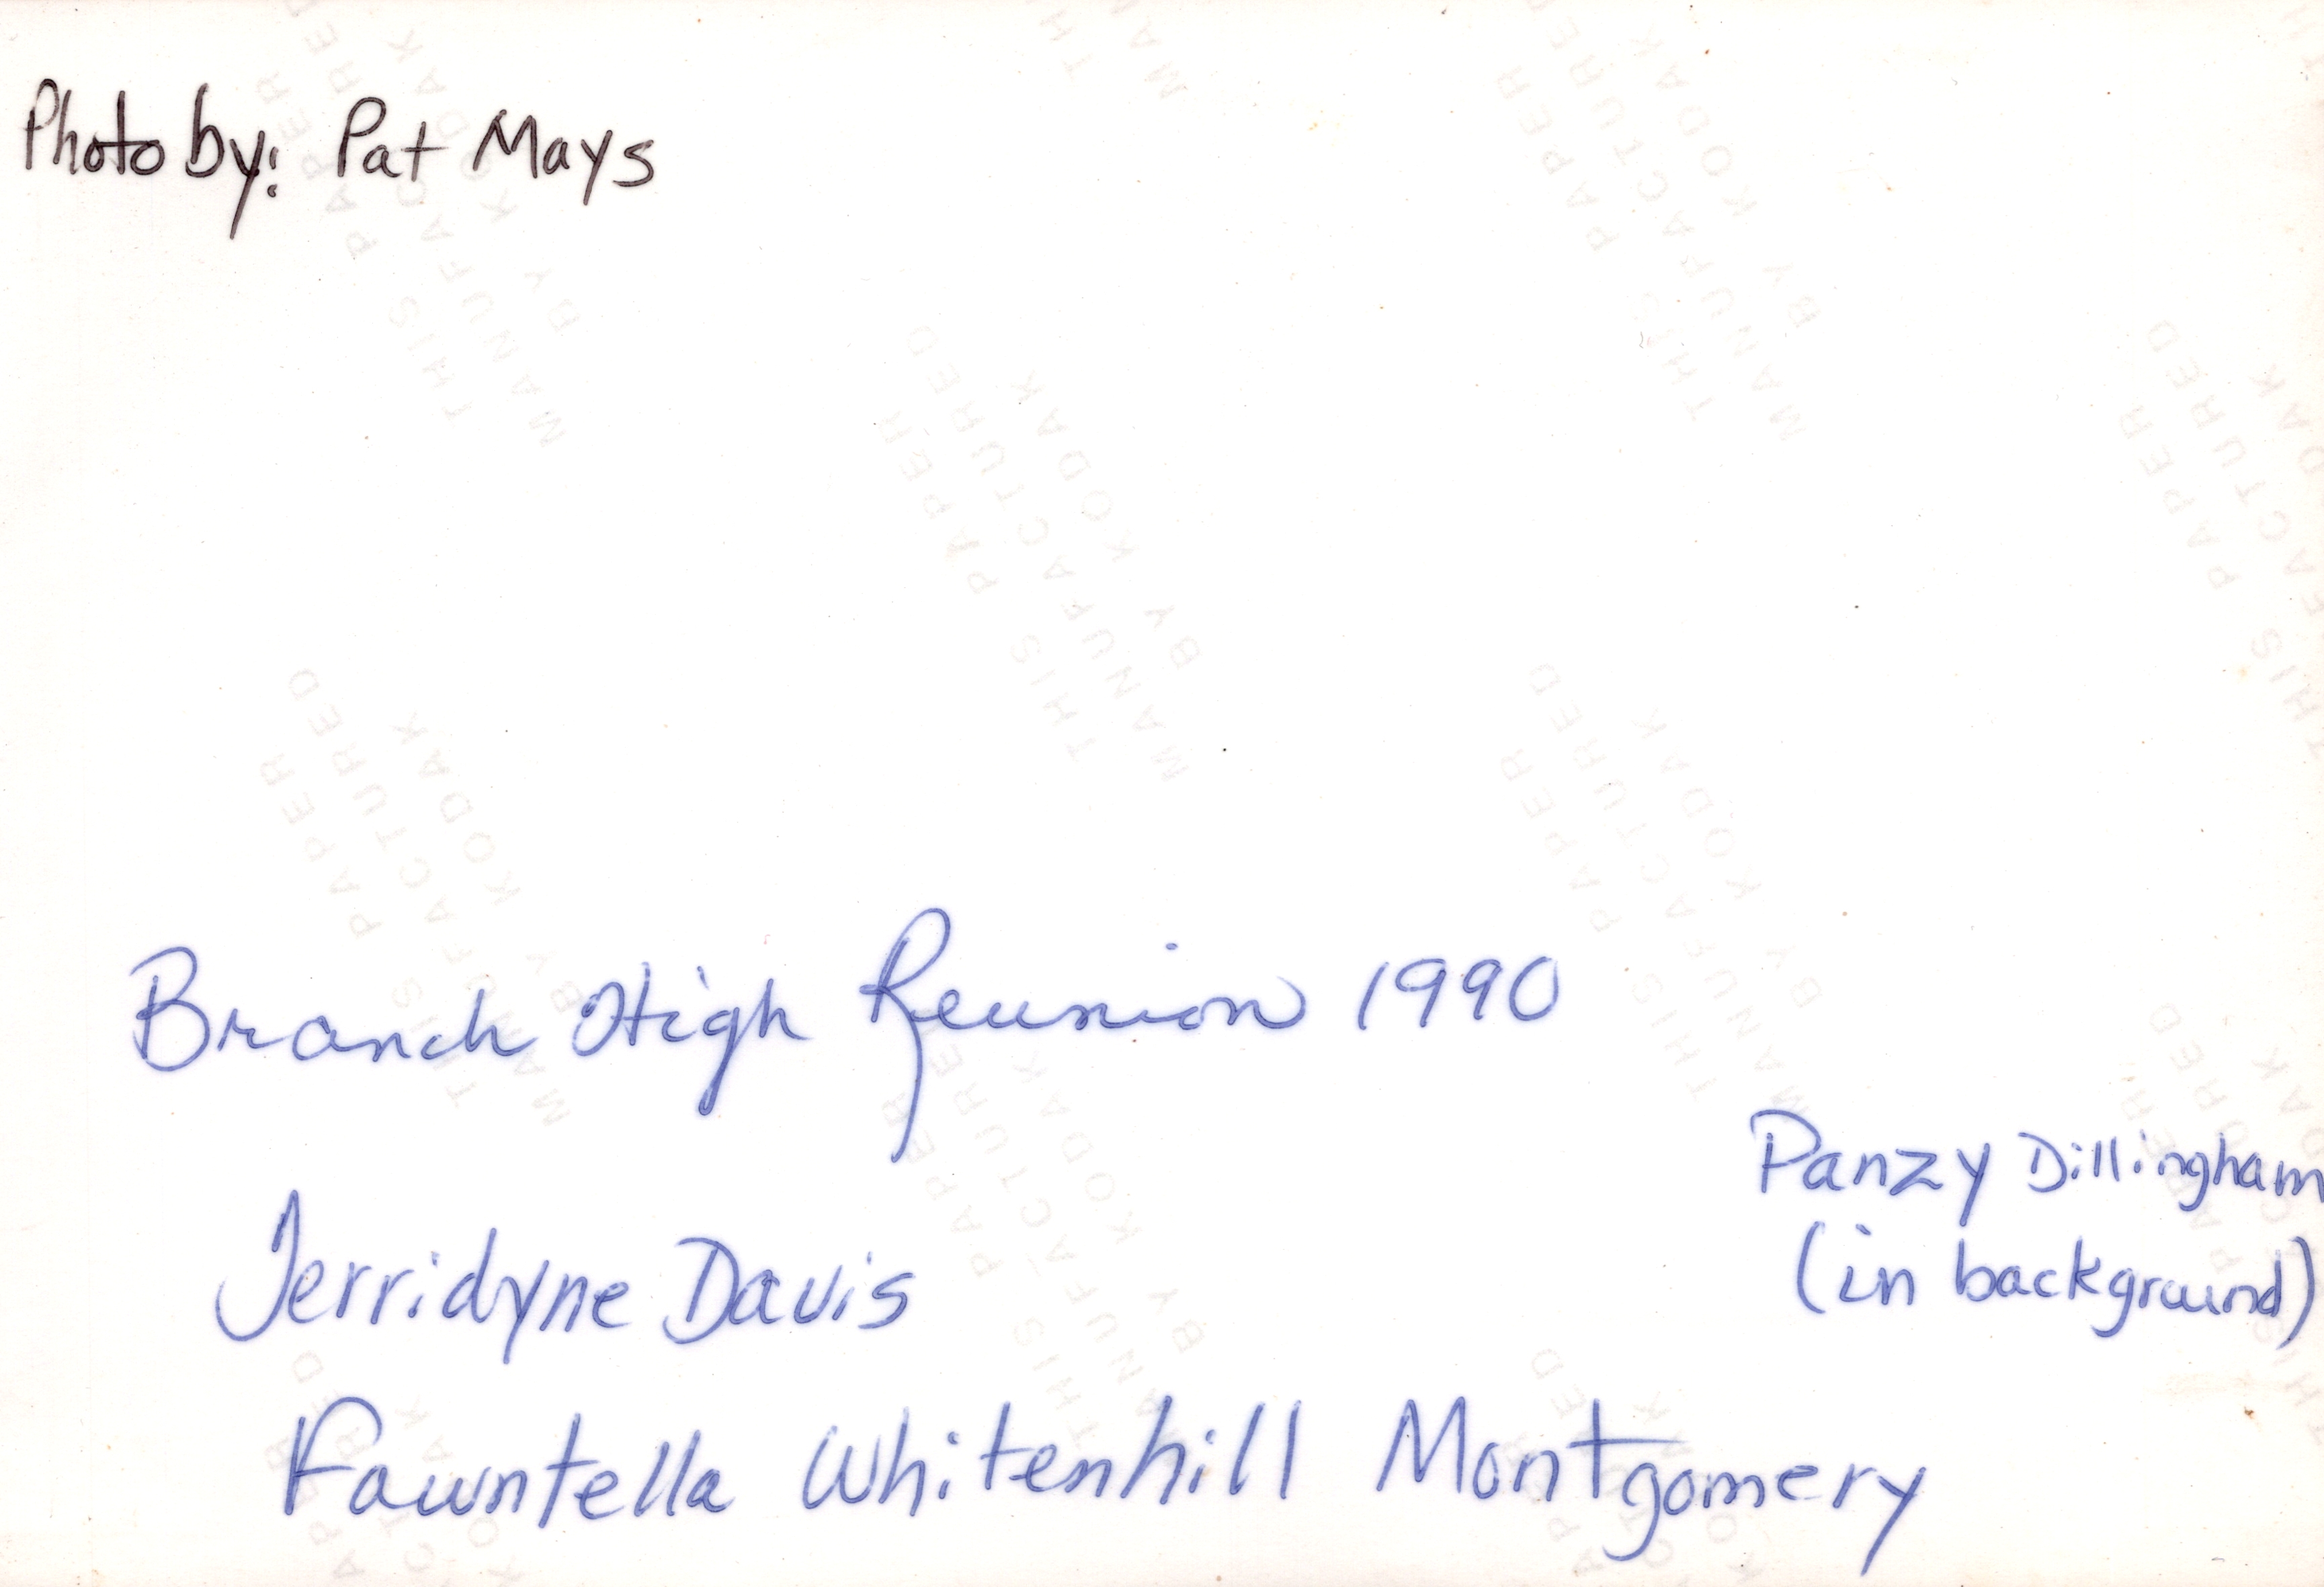 Photo by: Pat Mays
Branch High Reunion 1990
Panzy Dillingham
(in background)
Jerridyne Davis
Fawntella Whitenhill Montgomery
THIS PAPER
MANUFACTURED
BY KODAK